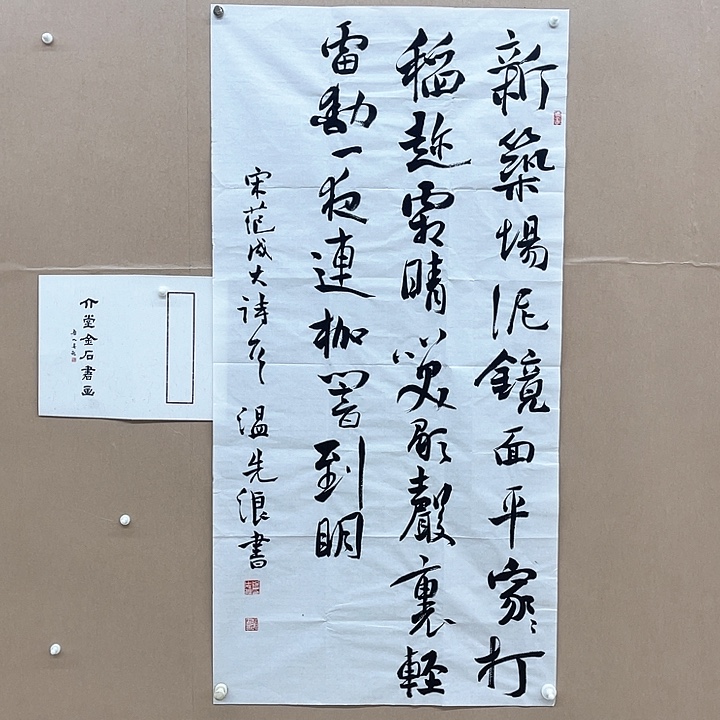 新築場泥鏡面平家〻打
稻趂霜晴笑歌聲裏軽
雷動一夜連枷響到明
宋范成大詩 温先浪書
介堂金石書画